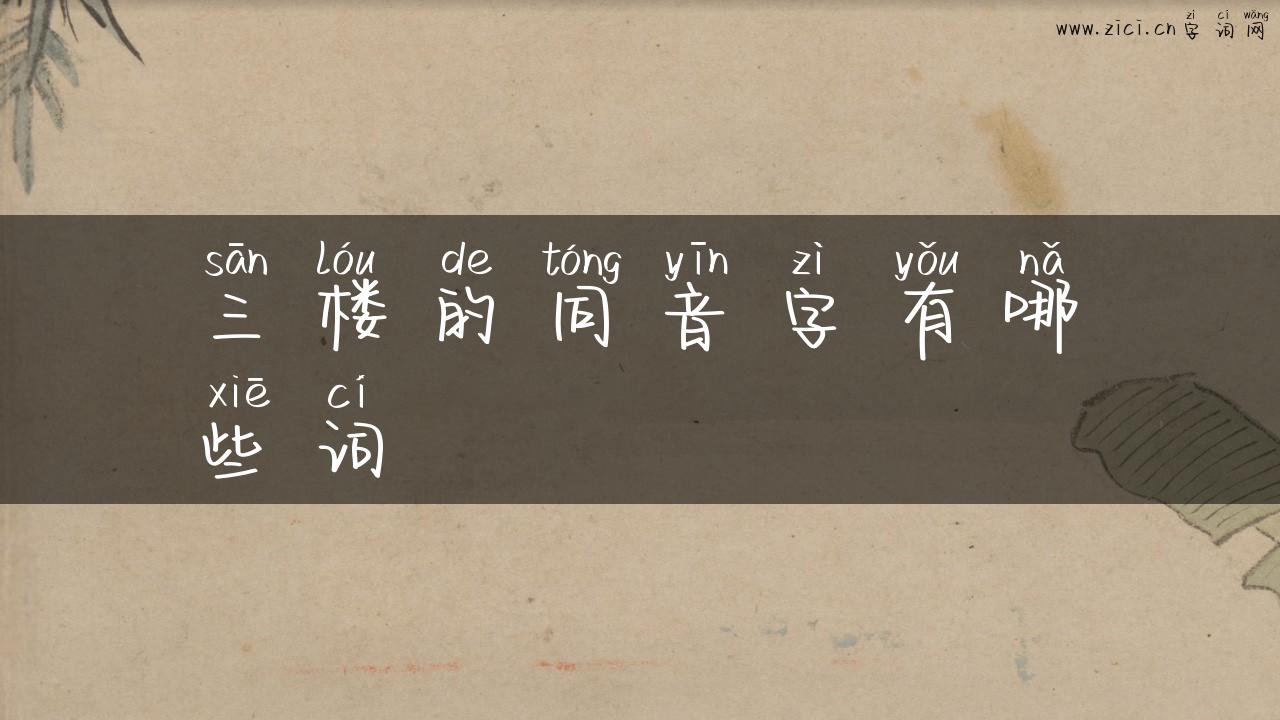 zì cí wǎng
www.zici.cn 字 词 网
sān lóu de tóng yīn zì yǒu nǎ
三 楼 的 同 音 字 有 哪
xiē cí
些 词